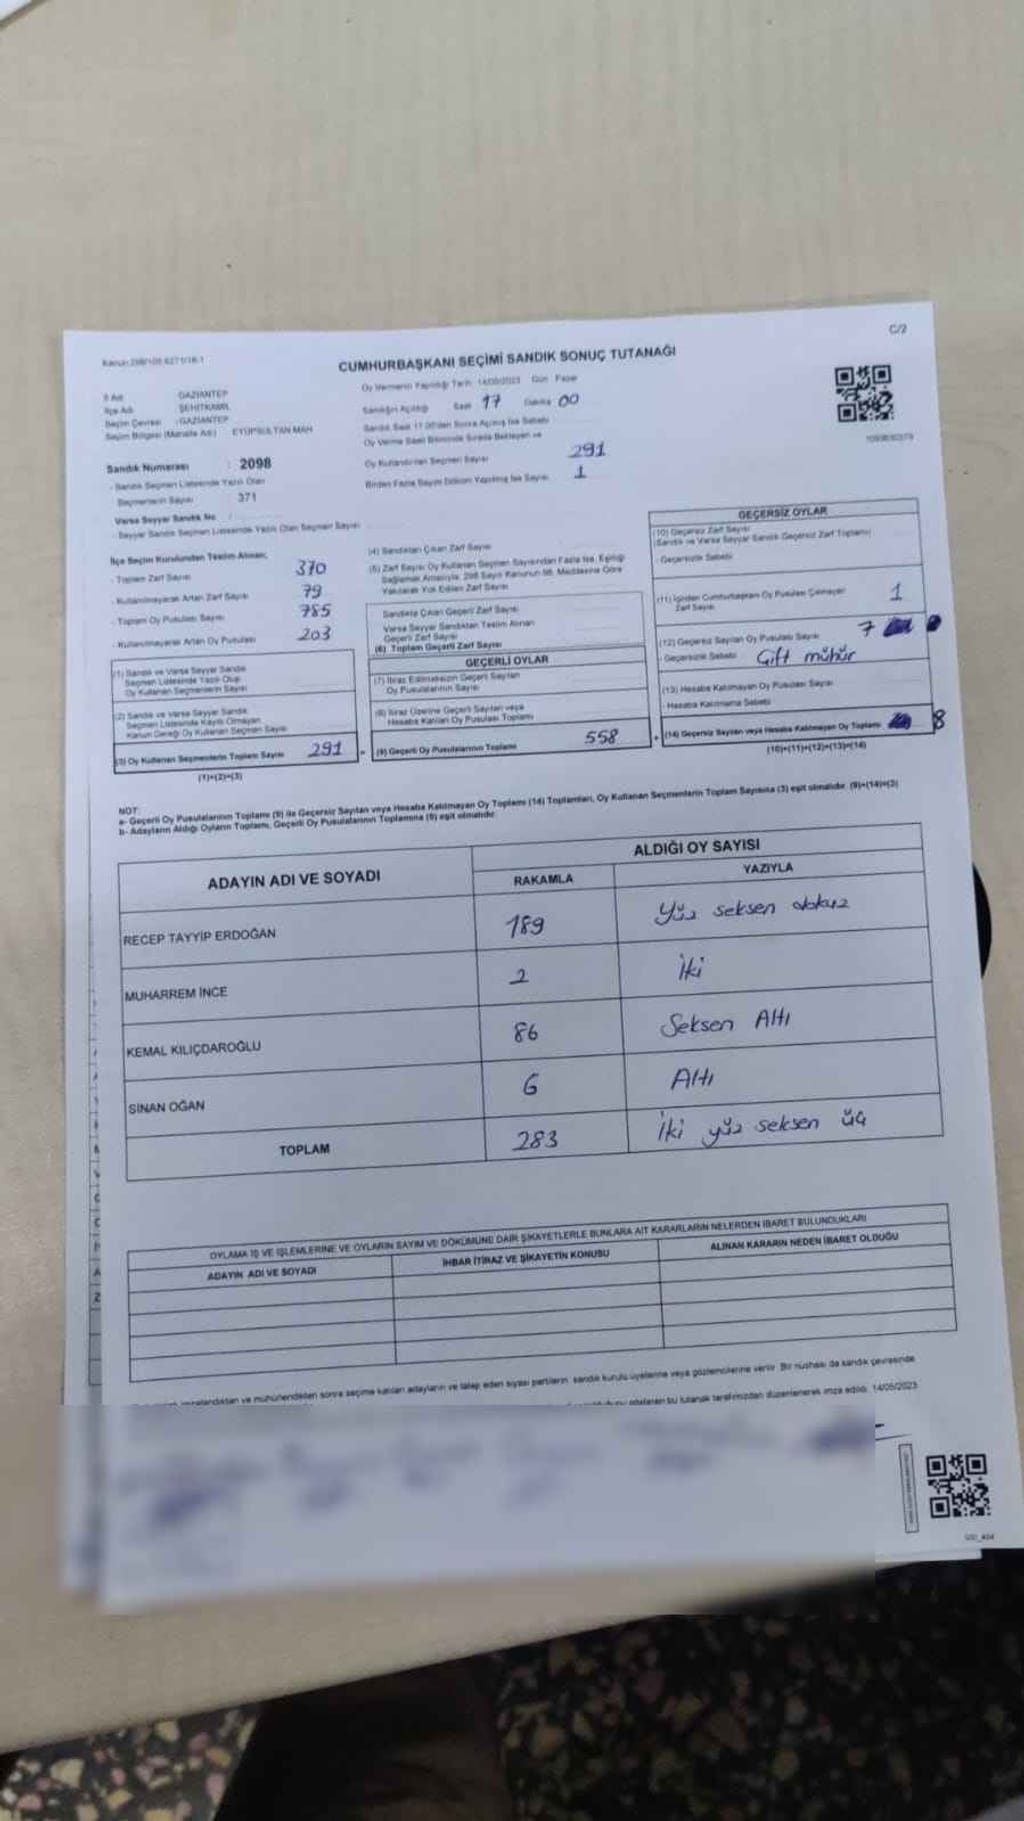 C/2
CUMHURBAŞKANI SEÇİMİ SANDIK SONUÇ TUTANAĞI
İl Adı GAZİANTEP
İlçe Adı ŞEHİTKAMİL
Seçim Çevresi :GAZİANTEP
Seçim Bölgesi (Mahalle Adı) EYÜPSULTAN MAH
Oy Vermenin Yapıldığı Tarih 14/05/2023 Gün Pazar
Sandığın Açıldığı Saat 17 Dakika 00
Oy Kullandırılan Seçmen Sayısı 291
Birden Fazla Sayım Döküm Yapılmış İse Sayısı 1
Sandık Numarası : 2098
- Sandık Seçmen Listesinde Yazılı Olan
Seçmenlerin Sayısı 371
Varsa Seyyar Sandık No :
- Seyyar Sandık Seçmen Listesinde Yazılı Olan Seçmen Sayısı
İlçe Seçim Kurulundan Teslim Alınan;
- Toplam Zarf Sayısı 370
- Kullanılmayarak Artan Zarf Sayısı 79
- Toplam Oy Pusulası Sayısı 785
- Kullanılmayarak Artan Oy Pusulası 203
(1) Sandık ve Varsa Seyyar Sandık
Seçmen Listesinde Yazılı Olup
Oy Kullanan Seçmenlerin Sayısı
(2) Sandık ve Varsa Seyyar Sandık
Seçmen Listesinde Kayıtlı Olmayan
Kanun Gereği Oy Kullanan Seçmen Sayısı
(3) Oy Kullanan Seçmenlerin Toplam Sayısı 291
(1)+(2)=(3)
(4) Sandıktan Çıkan Zarf Sayısı
(5) Zarf Sayısı Oy Kullanan Seçmen Sayısından Fazla İse, Eşitliği
Sağlamak Amacıyla, 298 Sayılı Kanunun 98. Maddesine Göre
Yakılarak Yok Edilen Zarf Sayısı
Sandıkta Çıkan Geçerli Zarf Sayısı
Varsa Seyyar Sandıktan Teslim Alınan
Geçerli Zarf Sayısı
(6) Toplam Geçerli Zarf Sayısı
GEÇERLİ OYLAR
(7) İtiraz Edilmeksizin Geçerli Sayılan
Oy Pusulalarının Sayısı
(8) İtiraz Üzerine Geçerli Sayılan veya
Hesaba Katılan Oy Pusulası Toplamı
(9) Geçerli Oy Pusulalarının Toplamı 558
GEÇERSİZ OYLAR
(10) Geçersiz Zarf Sayısı
(Sandık ve Varsa Seyyar Sandık Geçersiz Zarf Toplamı)
- Geçersizlik Sebebi
(11) İçinden Cumhurbaşkanı Oy Pusulası Çıkmayan
Zarf Sayısı 1
(12) Geçersiz Sayılan Oy Pusulası Sayısı 7
- Geçersizlik Sebebi Çift mühür
(13) Hesaba Katılmayan Oy Pusulası Sayısı
- Hesaba Katılmama Sebebi
(14) Geçersiz Sayılan veya Hesaba Katılmayan Oy Toplamı 8
(10)+(11)+(12)+(13)=(14)
NOT:
a- Geçerli Oy Pusulalarının Toplamı (9) ile Geçersiz Sayılan veya Hesaba Katılmayan Oy Toplamı (14) Toplamları, Oy Kullanan Seçmenlerin Toplam Sayısına (3) eşit olmalıdır. (9)+(14)=(3)
b- Adayların Aldığı Oyların Toplamı, Geçerli Oy Pusulalarının Toplamına (9) eşit olmalıdır.
ADAYIN ADI VE SOYADI
ALDIĞI OY SAYISI
RAKAMLA YAZIYLA
RECEP TAYYİP ERDOĞAN 189 Yüz seksen dokuz
MUHARREM İNCE 2 İki
KEMAL KILIÇDAROĞLU 86 Seksen Altı
SİNAN OĞAN 6 Altı
TOPLAM 283 İki yüz seksen üç
OYLAMA İŞ VE İŞLEMLERİNE VE OYLARIN SAYIM VE DÖKÜMÜNE DAİR ŞİKAYETLERLE BUNLARA AİT KARARLARIN NELERDEN İBARET BULUNDUKLARI
ADAYIN ADI VE SOYADI İHBAR İTİRAZ VE ŞİKAYETİN KONUSU ALINAN KARARIN NEDEN İBARET OLDUĞU
imzalandıktan ve mühürlendikten sonra seçime katılan adayların ve talep eden siyasi partilerin sandık kurulu üyelerine veya gözlemcilerine verilir. Bir nüshası da sandık çevresinde
bu tutanak tarafımızdan düzenlenerek imza edildi. 14/05/2023